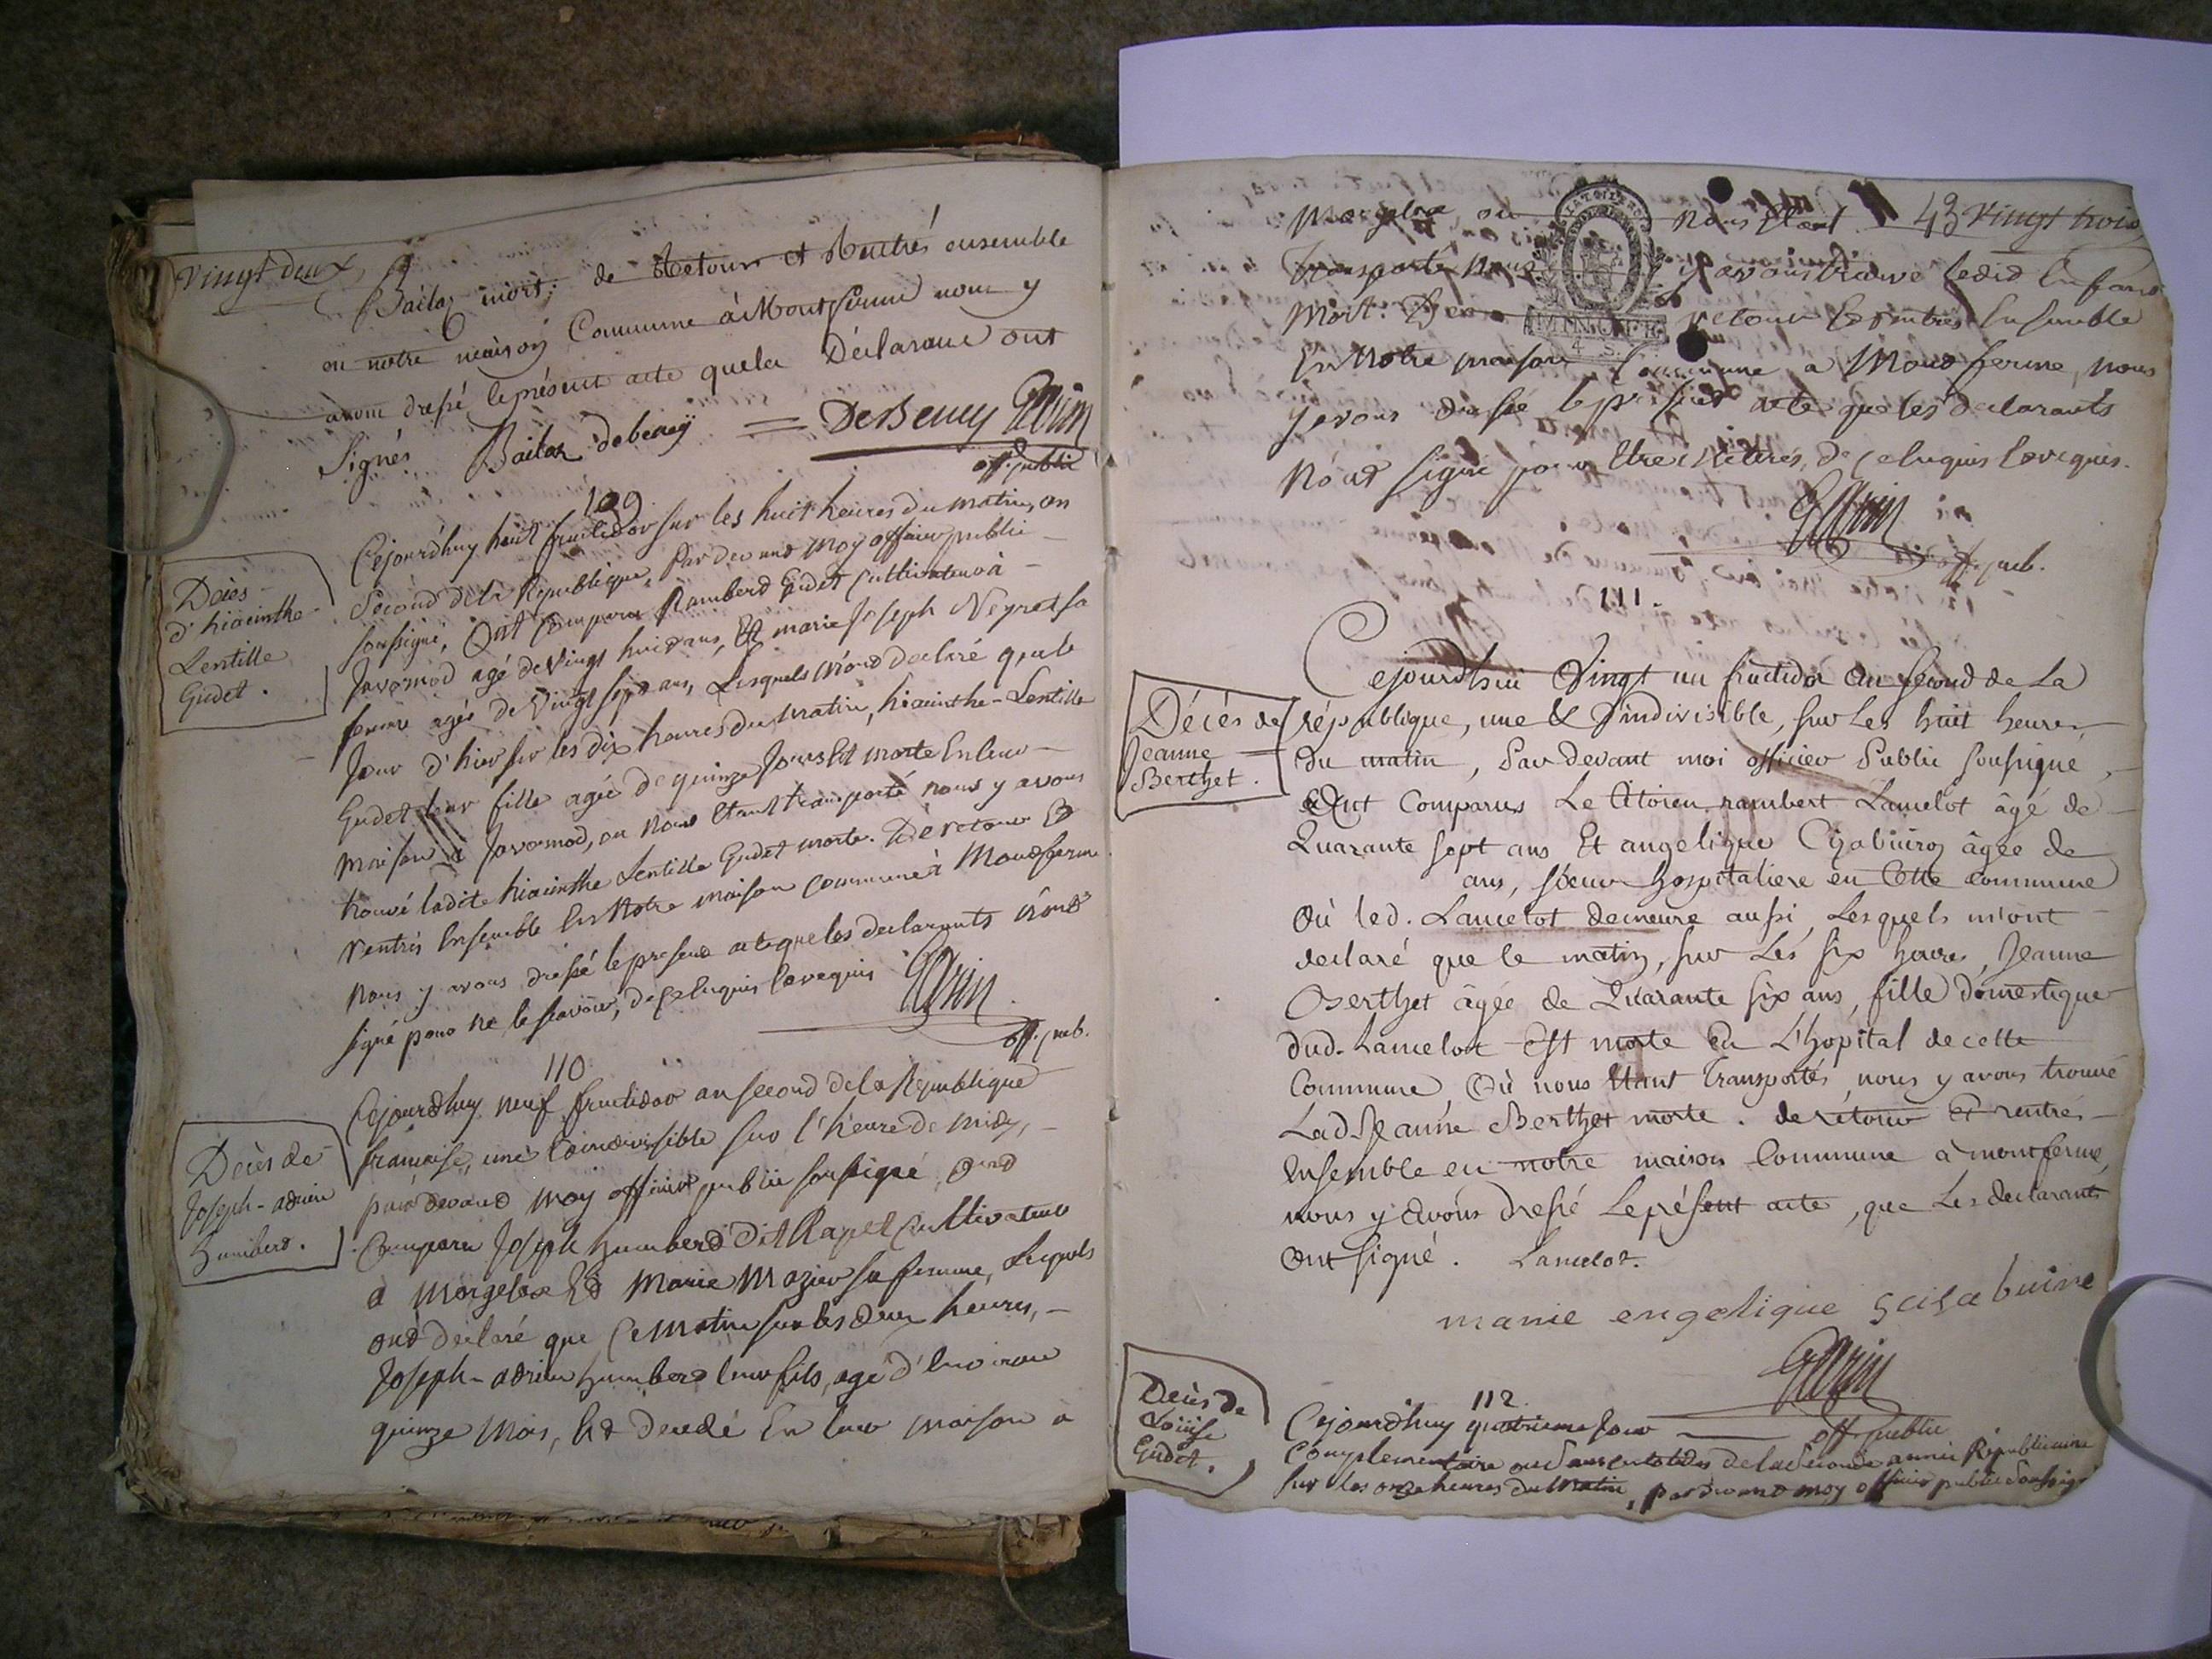 Vingt deux
Bailaz mort; de Retour et Rentrés ensemble
en notre maison Commune à Montferme nous y
avons dressé le présent acte que les Déclarans ont
Signés Bailaz debeney = DeBeney
off. public
109
Cejourd'huy huit fructidor sur les huit heures du matin, an
Second de la Republique, Par devant moy officier public
soussigné, Ont Comparu Rambert Gudet Cultivateur à
Javomod agé de Vingt huit ans, Et marie Joseph Neyret sa
femme agée de Vingt sept ans, Lesquels m'ont declaré que le
Jour d'hier sur les dix heures du matin, hiacinthe-Lentille
Gudet leur fille agée de quinze Jours Est morte En leur
maison à Javomod, ou nous Etant transporté nous y avons
trouvé ladite hiacinthe Lentille Gudet morte. De retour Et
rentrés Ensemble En Notre maison commune à Montferme
nous y avons dressé le present acte que les declarants n'ont
signé pour ne le sçavoir, de ce Enquis & requis
off. pub.
Décès
d'hiacinthe
Lentille
Gudet.
110
Cejourdhuy neuf fructidor an second de la Republique
francaise, une & indivisible sur l'heure de midy,
par devant moy officier public soussigné, Ont
Comparu Joseph humbert dit Rapet Cultivateur
à Morgelaz Et Marie Mazier sa femme, Lesquels
ont declaré que ce matin sur les deux heures,
Joseph-adrien humbert leur fils, agé d'Environ
quinze mois, Est decedé En leur maison a
Décès de
Joseph-adrien
humbert.
43 Vingt trois
Morgelaz, ou nous Etant
transporté nous y avons trouvé ledit Enfant
Mort. De retour & rentrés Ensemble
En Notre maison Commune a Montferme, nous
y avons dressé le présent acte que les declarants
N'ont signé pour Etre illitérés, de ce Enquis & requis.
MINUTE
4. S.
off. pub.
111.
Cejourdhui Vingt un fructidor an second de La
république, une & indivisible, sur Les huit heures
du matin, Par devant moi officier Public soussigné,
Ont Comparus Le Citoien rambert Lancelot âgé de
Quarante sept ans Et angelique âgée de
ans, soeur hospitaliere en Cette commune
Où led. Lancelot demeure aussi, Lesquels m'ont
declaré que le matin, sur Les six heures, Jeanne
Berthet âgée de Quarante six ans, fille domestique
dud. Lancelot Est morte En L'hôpital de cette
Commune, Où nous Etant Transportés, nous y avons trouvé
Lad Jeanne Berthet morte. de retour Et rentrés
Ensemble en notre maison Commune à montferme,
nous y avons dressé Le présent acte, que Les declarants
Ont signé. Lancelot.
marie engelique
off. public
Décès de
Jeanne
Berthet.
112.
Cejourdhuy quatrieme Jour
Complementaire de la Seconde année Républicaine
sur les onze heures du Matin, par devant moy officier public soussigné
Décès de
Loüise
Gudet.